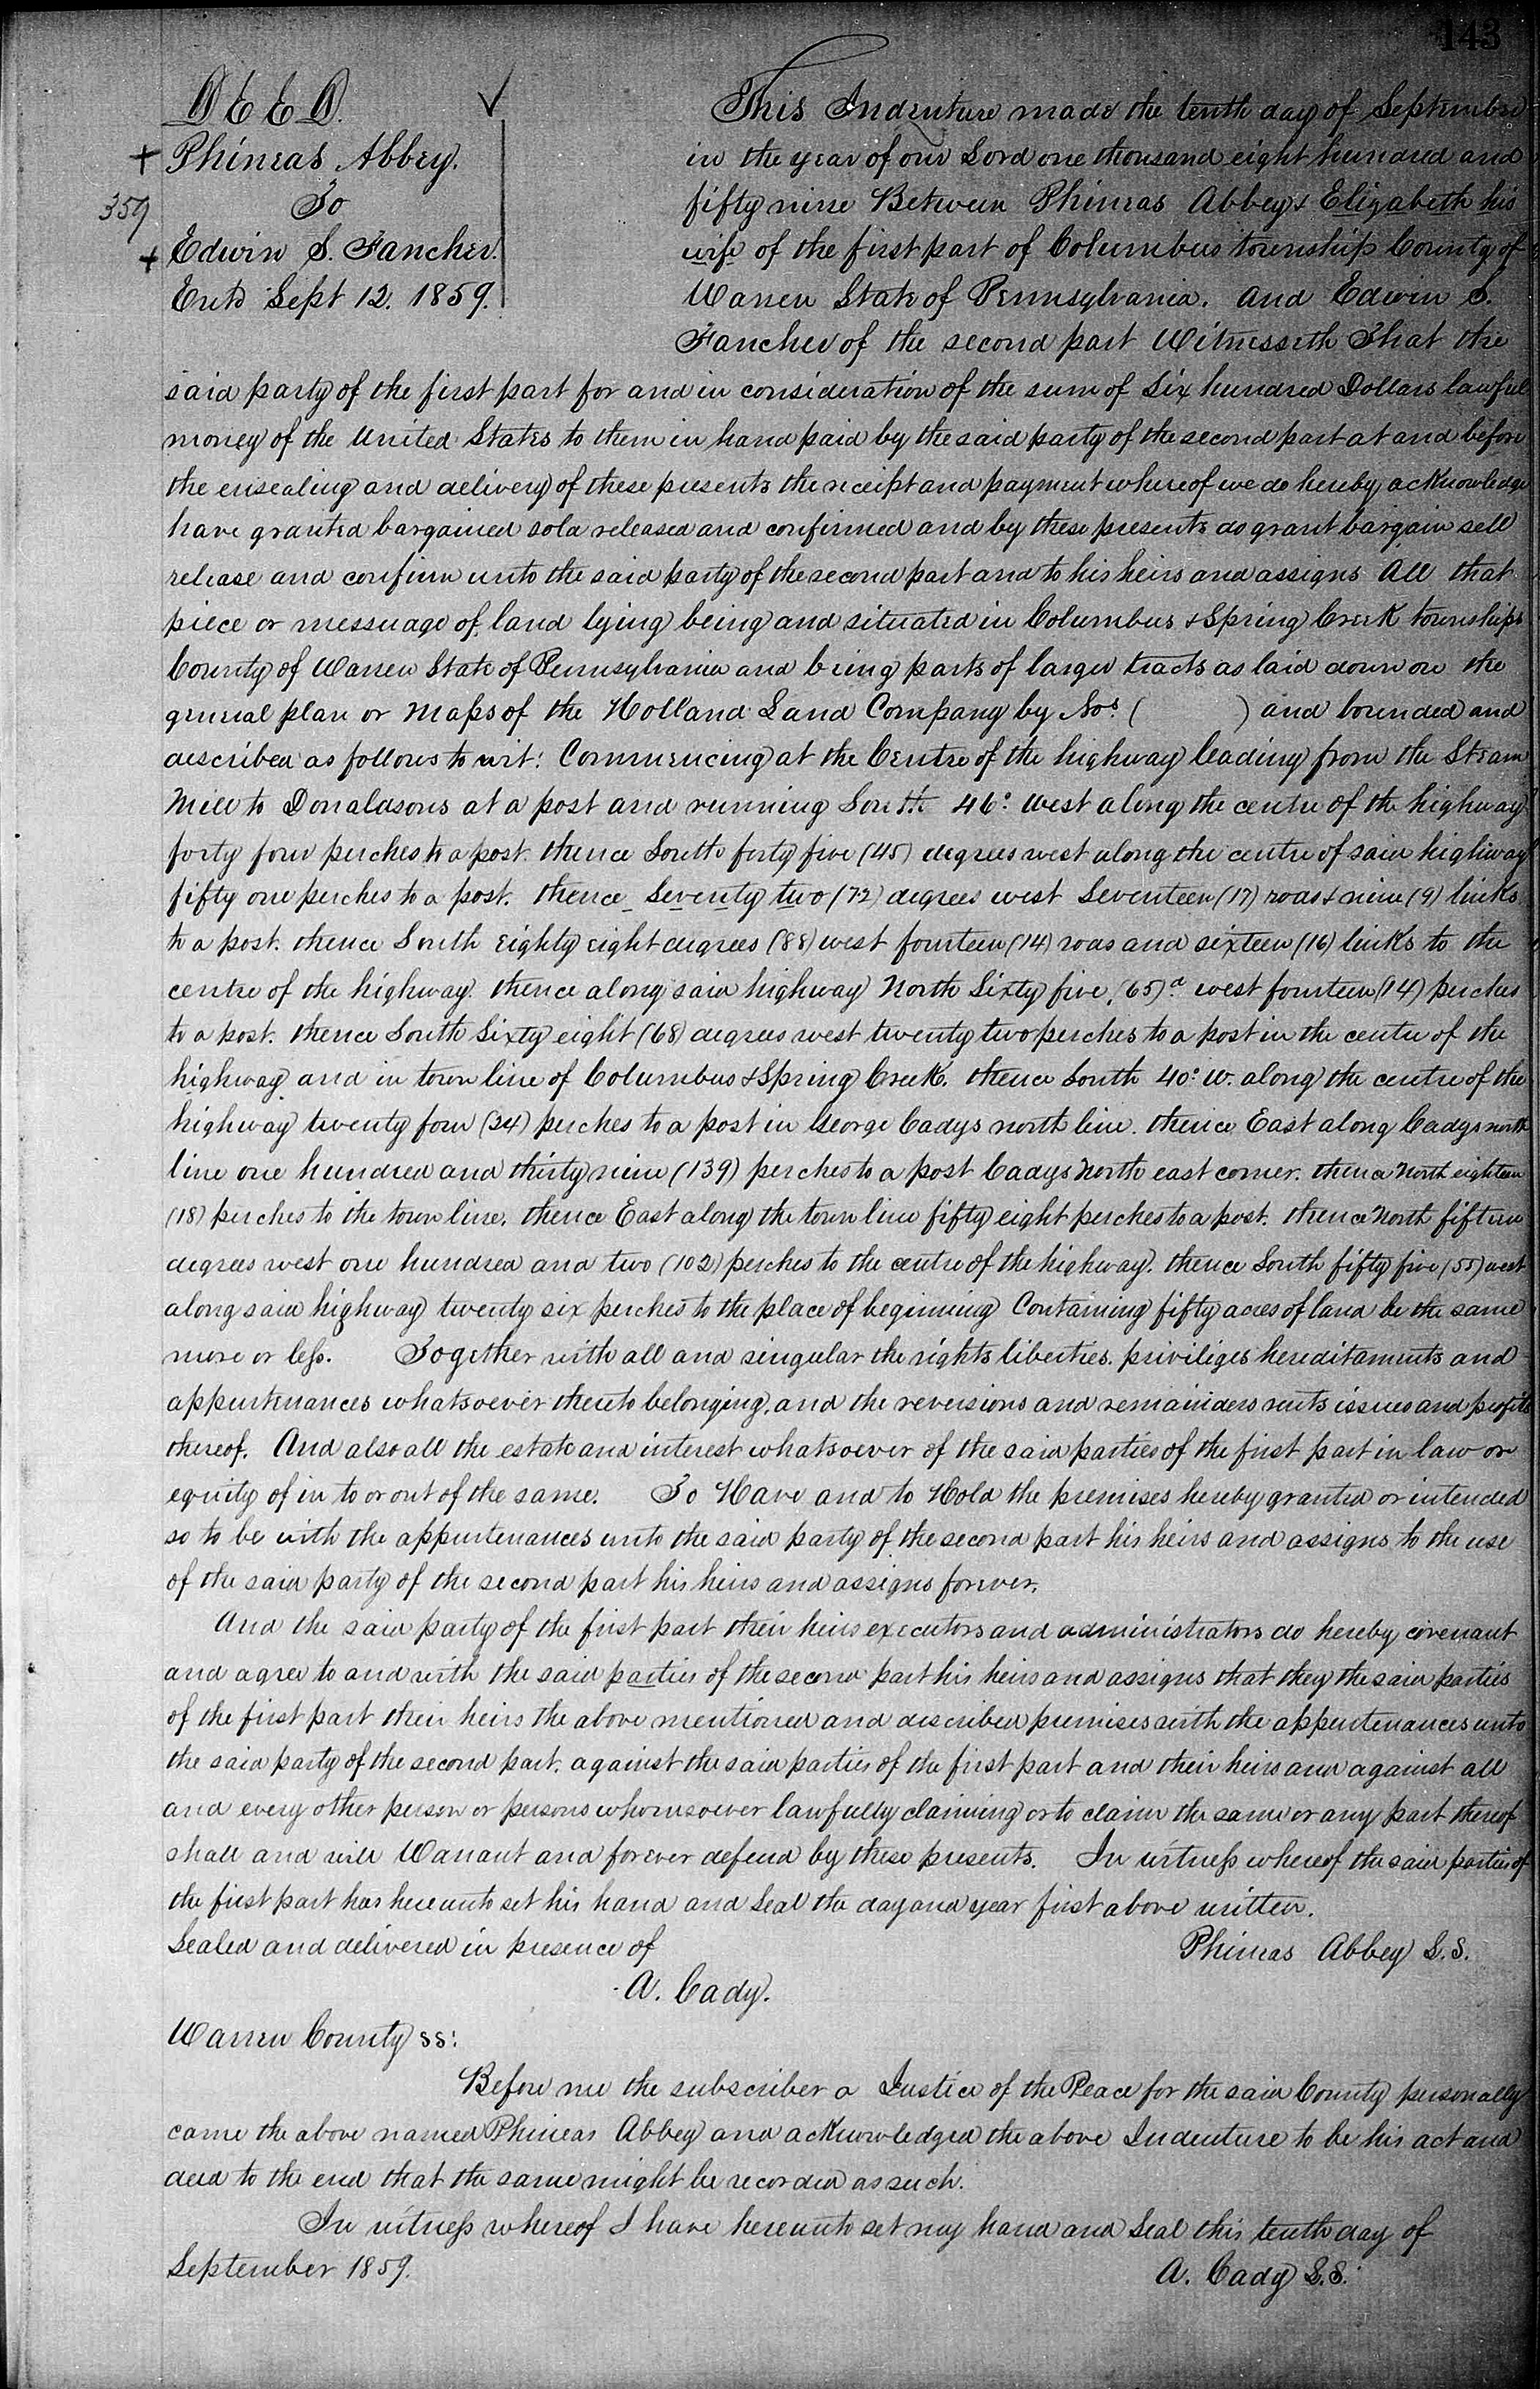 143
DEED.
Phineas Abbey.
To
359
Edwin S. Fancher.
Ent'd Sept 12. 1859.
This Indenture made the tenth day of September
in the year of our Lord one thousand eight hundred and
fifty nine Between Phineas Abbey & Elizabeth his
wife of the first part of Columbus township County of
Warren State of Pennsylvania. and Edwin S.
Fancher of the second part Witnesseth That the
said party of the first part for and in consideration of the sum of Six hundred Dollars lawful
money of the United States to them in hand paid by the said party of the second part at and before
the ensealing and delivery of these presents the receipt and payment whereof we do hereby acknowledge
have granted bargained sold released and confirmed and by these presents do grant bargain sell
release and confirm unto the said party of the second part and to his heirs and assigns All that
piece or messuage of land lying being and situated in Columbus & Spring Creek townships
County of Warren State of Pennsylvania and being parts of larger tracts as laid down on the
general plan or maps of the Holland Land Company by Nos. ( ) and bounded and
described as follows to wit: Commencing at the Centre of the highway leading from the Steam
Mill to Donaldsons at a post and running South 46° West along the centre of the highway
forty four perches to a post. thence South forty five (45) degrees west along the centre of said highway
fifty one perches to a post. thence Seventy two (72) degrees west Seventeen (17) rods & nine (9) links
to a post. thence South Eighty eight degrees (88) west fourteen (14) rods and sixteen (16) links to the
centre of the highway. thence along said highway North Sixty five, 65)d west fourteen (14) perches
to a post. thence South Sixty eight (68) degrees west twenty two perches to a post in the centre of the
highway and in town line of Columbus & Spring Creek. thence South 40° W. along the centre of the
highway twenty four (24) perches to a post in George Cadys north line. thence East along Cadys north
line one hundred and thirty nine (139) perches to a post Cadys North east corner. thence North eighteen
(18) perches to the town line. thence East along the town line fifty eight perches to a post. thence North fifteen
degrees west one hundred and two (102) perches to the centre of the highway. thence South fifty five (55) west
along said highway twenty six perches to the place of beginning Containing fifty acres of land be the same
more or less. Together with all and singular the rights liberties. priviliges hereditaments and
appurtenances whatsoever thereto belonging, and the reversions and remainders rents issues and profits
thereof. And also all the estate and interest whatsoever of the said parties of the first part in law or
equity of in to or out of the same. To Have and to Hold the premises hereby granted or intended
so to be with the appurtenances unto the said party of the second part his heirs and assigns to the use
of the said party of the second part his heirs and assigns forever.
And the said party of the first part their heirs executors and administrators do hereby covenant
and agree to and with the said parties of the second part his heirs and assigns that they the said parties
of the first part their heirs the above mentioned and described premises with the appurtenances unto
the said party of the second part. against the said parties of the first part and their heirs and against all
and every other person or persons whomsoever lawfully claiming or to claim the same or any part thereof
shall and will Warrant and forever defend by these presents. In witness whereof the said parties of
the first part has hereunto set his hand and Seal the day and year first above written.
Sealed and delivered in presence of
Phineas Abbey L.S.
A. Cady.
Warren County ss:
Before me the subscriber a Justice of the Peace for the said County personally
came the above named Phineas Abbey and acknowledged the above Indenture to be his act and
deed to the end that the same might be recorded as such.
In witness whereof I have hereunto set my hand and Seal this tenth day of
September 1859.
A. Cady L.S.